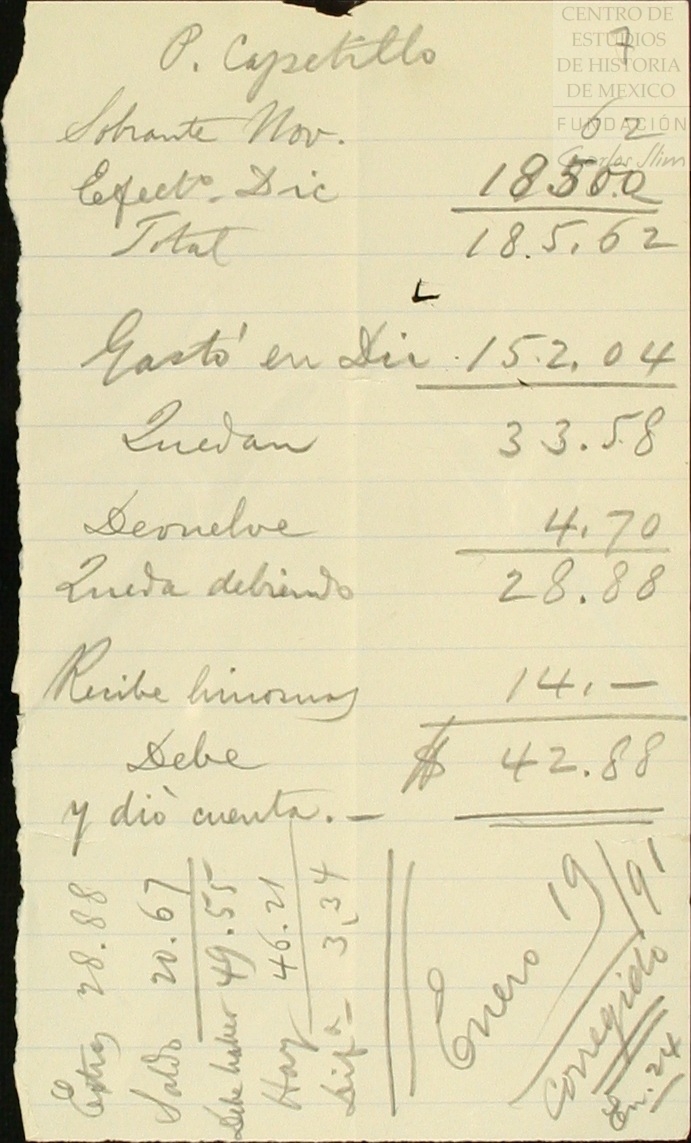 CENTRO DE
ESTUDIOS
DE HISTORIA
DE MEXICO
FUNDACIÓN
Carlos Slim
7
P. Capetillo
Sobrante Nov. 62
Efectº. Dic 185.00
Total 18.5.62
Gastó en Dic. 152.04
Quedan 33.58
Devuelve 4.70
Queda debiendo 28.88
Recibe limosnas 14.—
Debe $ 42.88
y dió cuenta.—
Extras 28.88
Saldo 20.67
Debe haber 49.55
Hay 46.21
Difª 3,34
Enero 19/91
corregido
En. 24